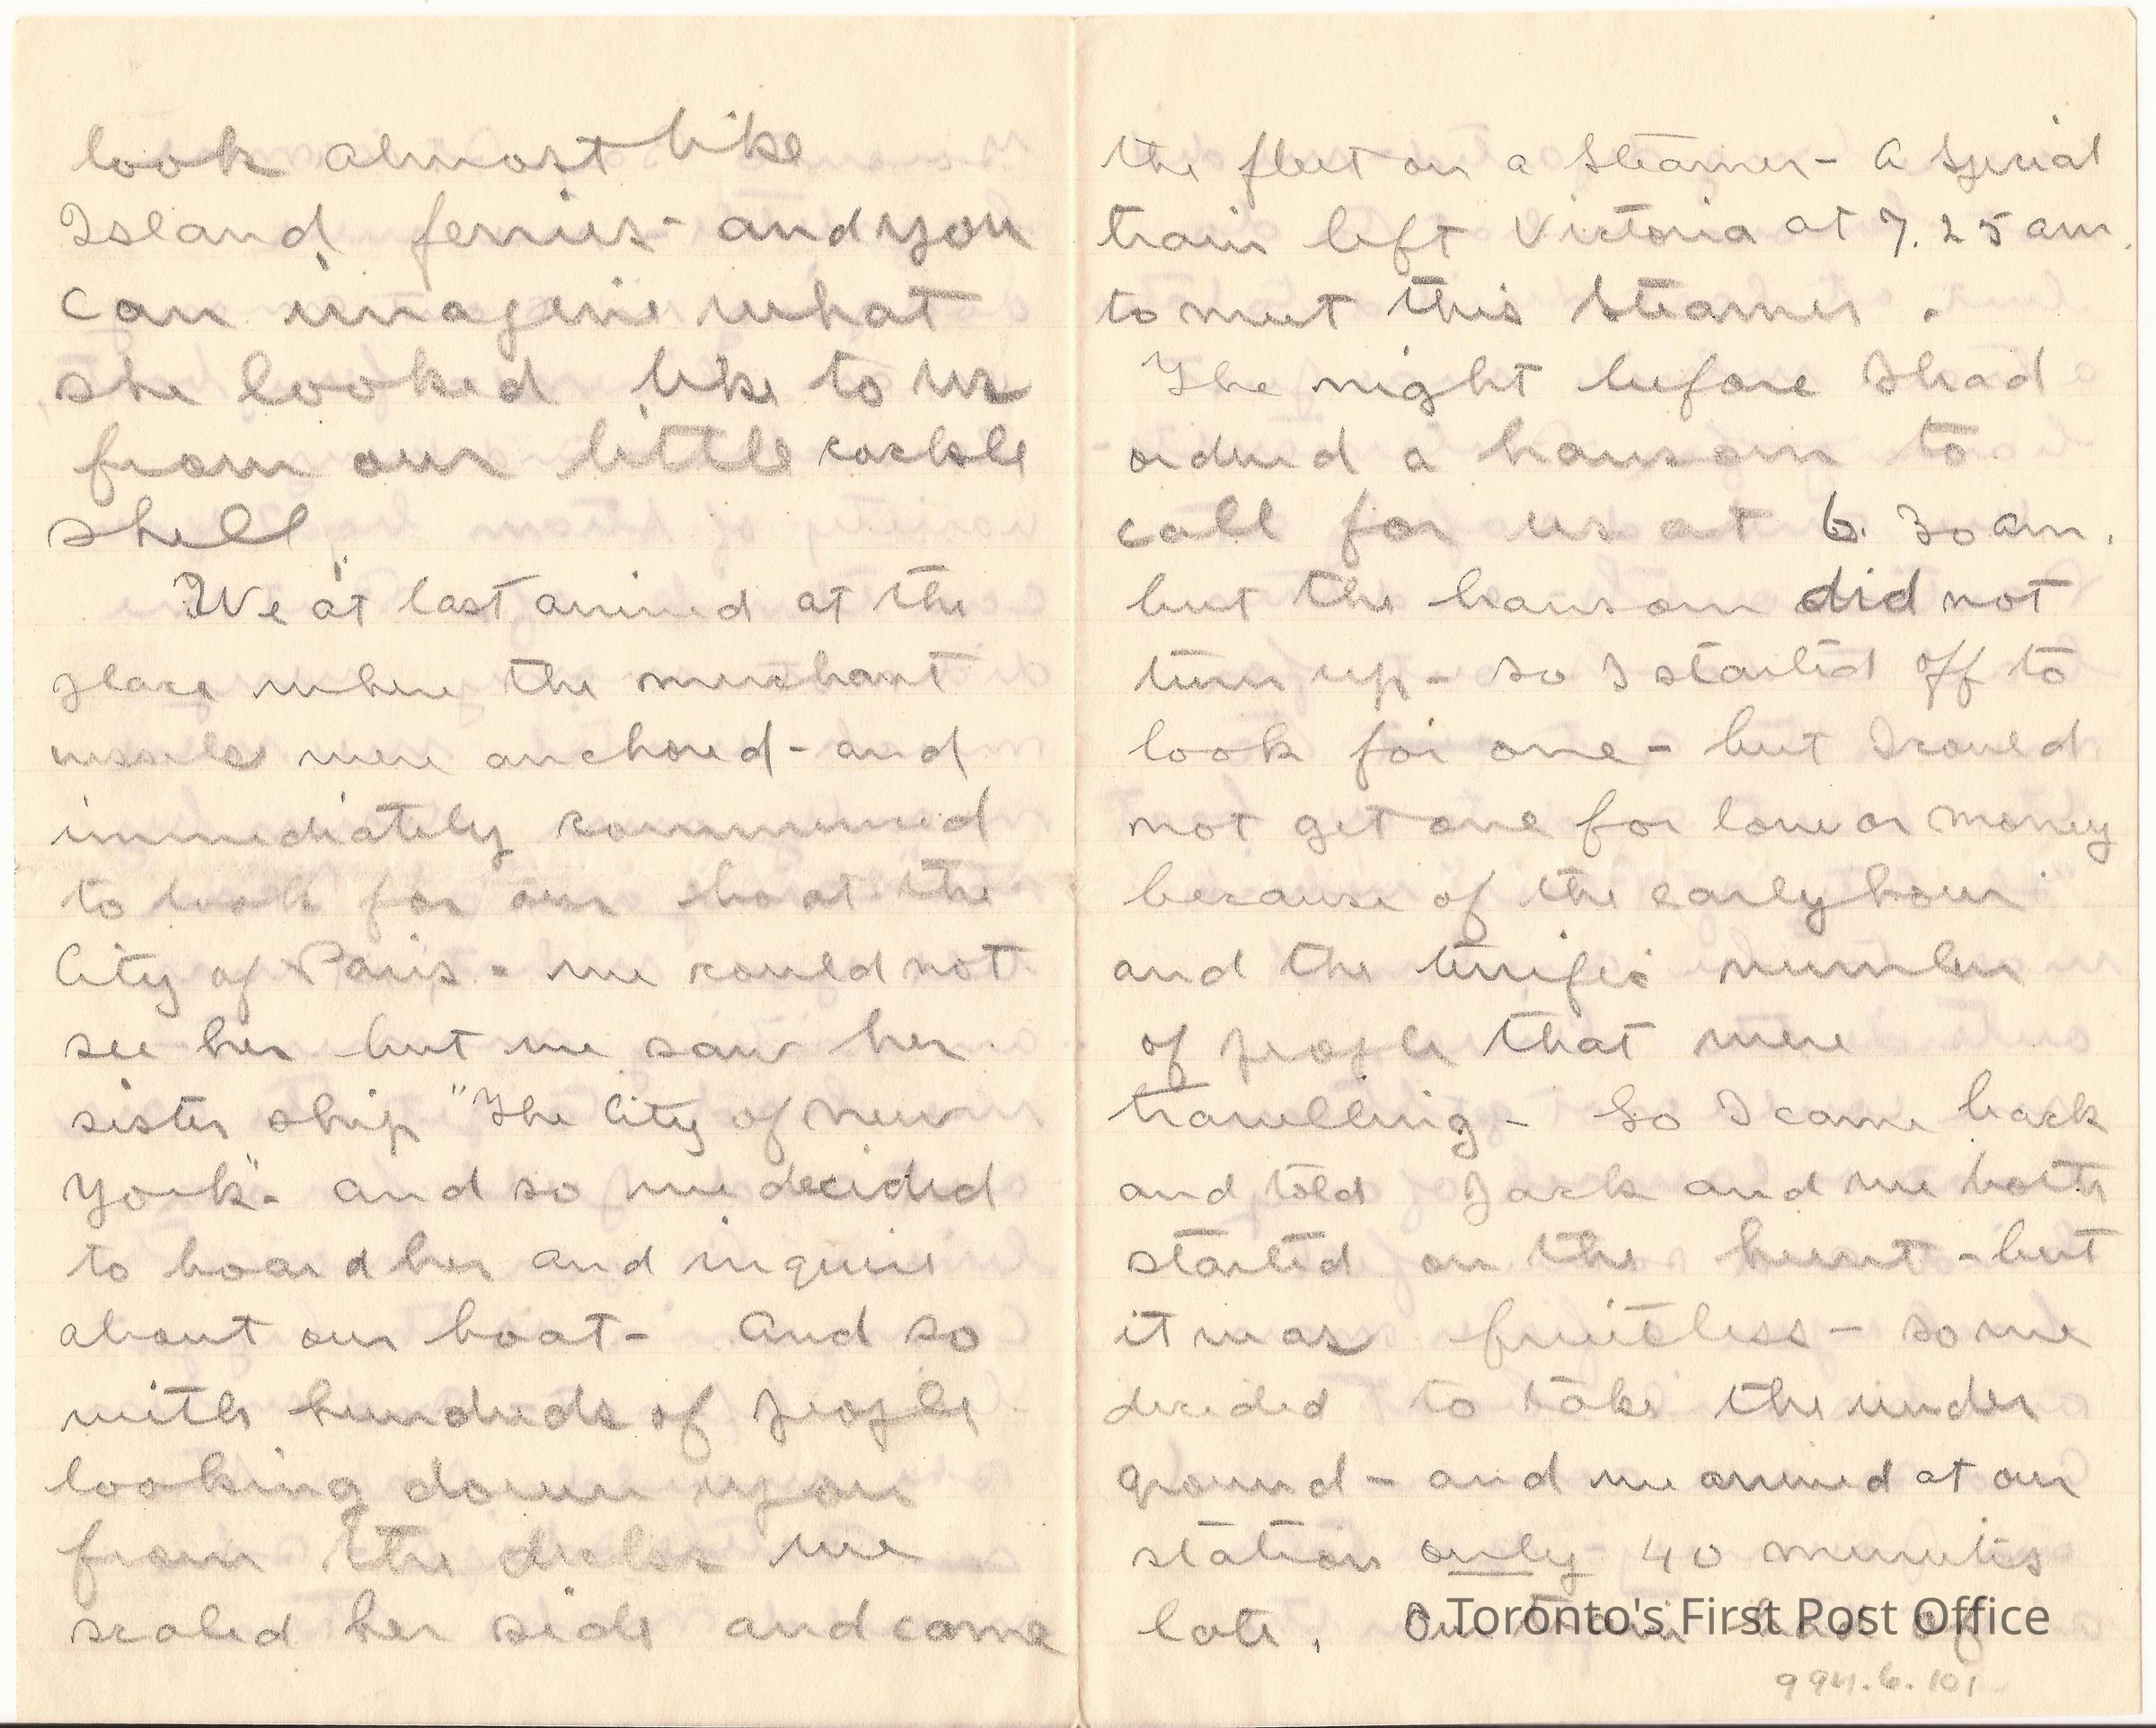 look almost like
Island ferries - and you
can imagine what
she looked like to us
from our little cockle
shell.
We at last arrived at the
place where the merchant
vessels were anchored - and
immediately commenced
to look for our boat the
City of Paris - we could not
see her but we saw her
sister ship "The City of New
York" - and so we decided
to board her and inquire
about our boat - And so
with hundreds of people
looking down upon
from the decks we
scaled her side and came
the fleet on a steamer - A special
train left Victoria at 7.25 am.
to meet this steamer.
The night before I had
ordered a hansom to
call for us at 6.30 am.
but the hansom did not
turn up - so I started off to
look for one - but I could
not get one for love or money
because of the early hour
and the terrific number
of people that were
travelling - So I came back
and told Jack and we both
started on the hunt - but
it was fruitless - so we
decided to take the under
ground - and we arrived at our
station only 40 minutes
late. Our train had of
© Toronto's First Post Office
994.6.101